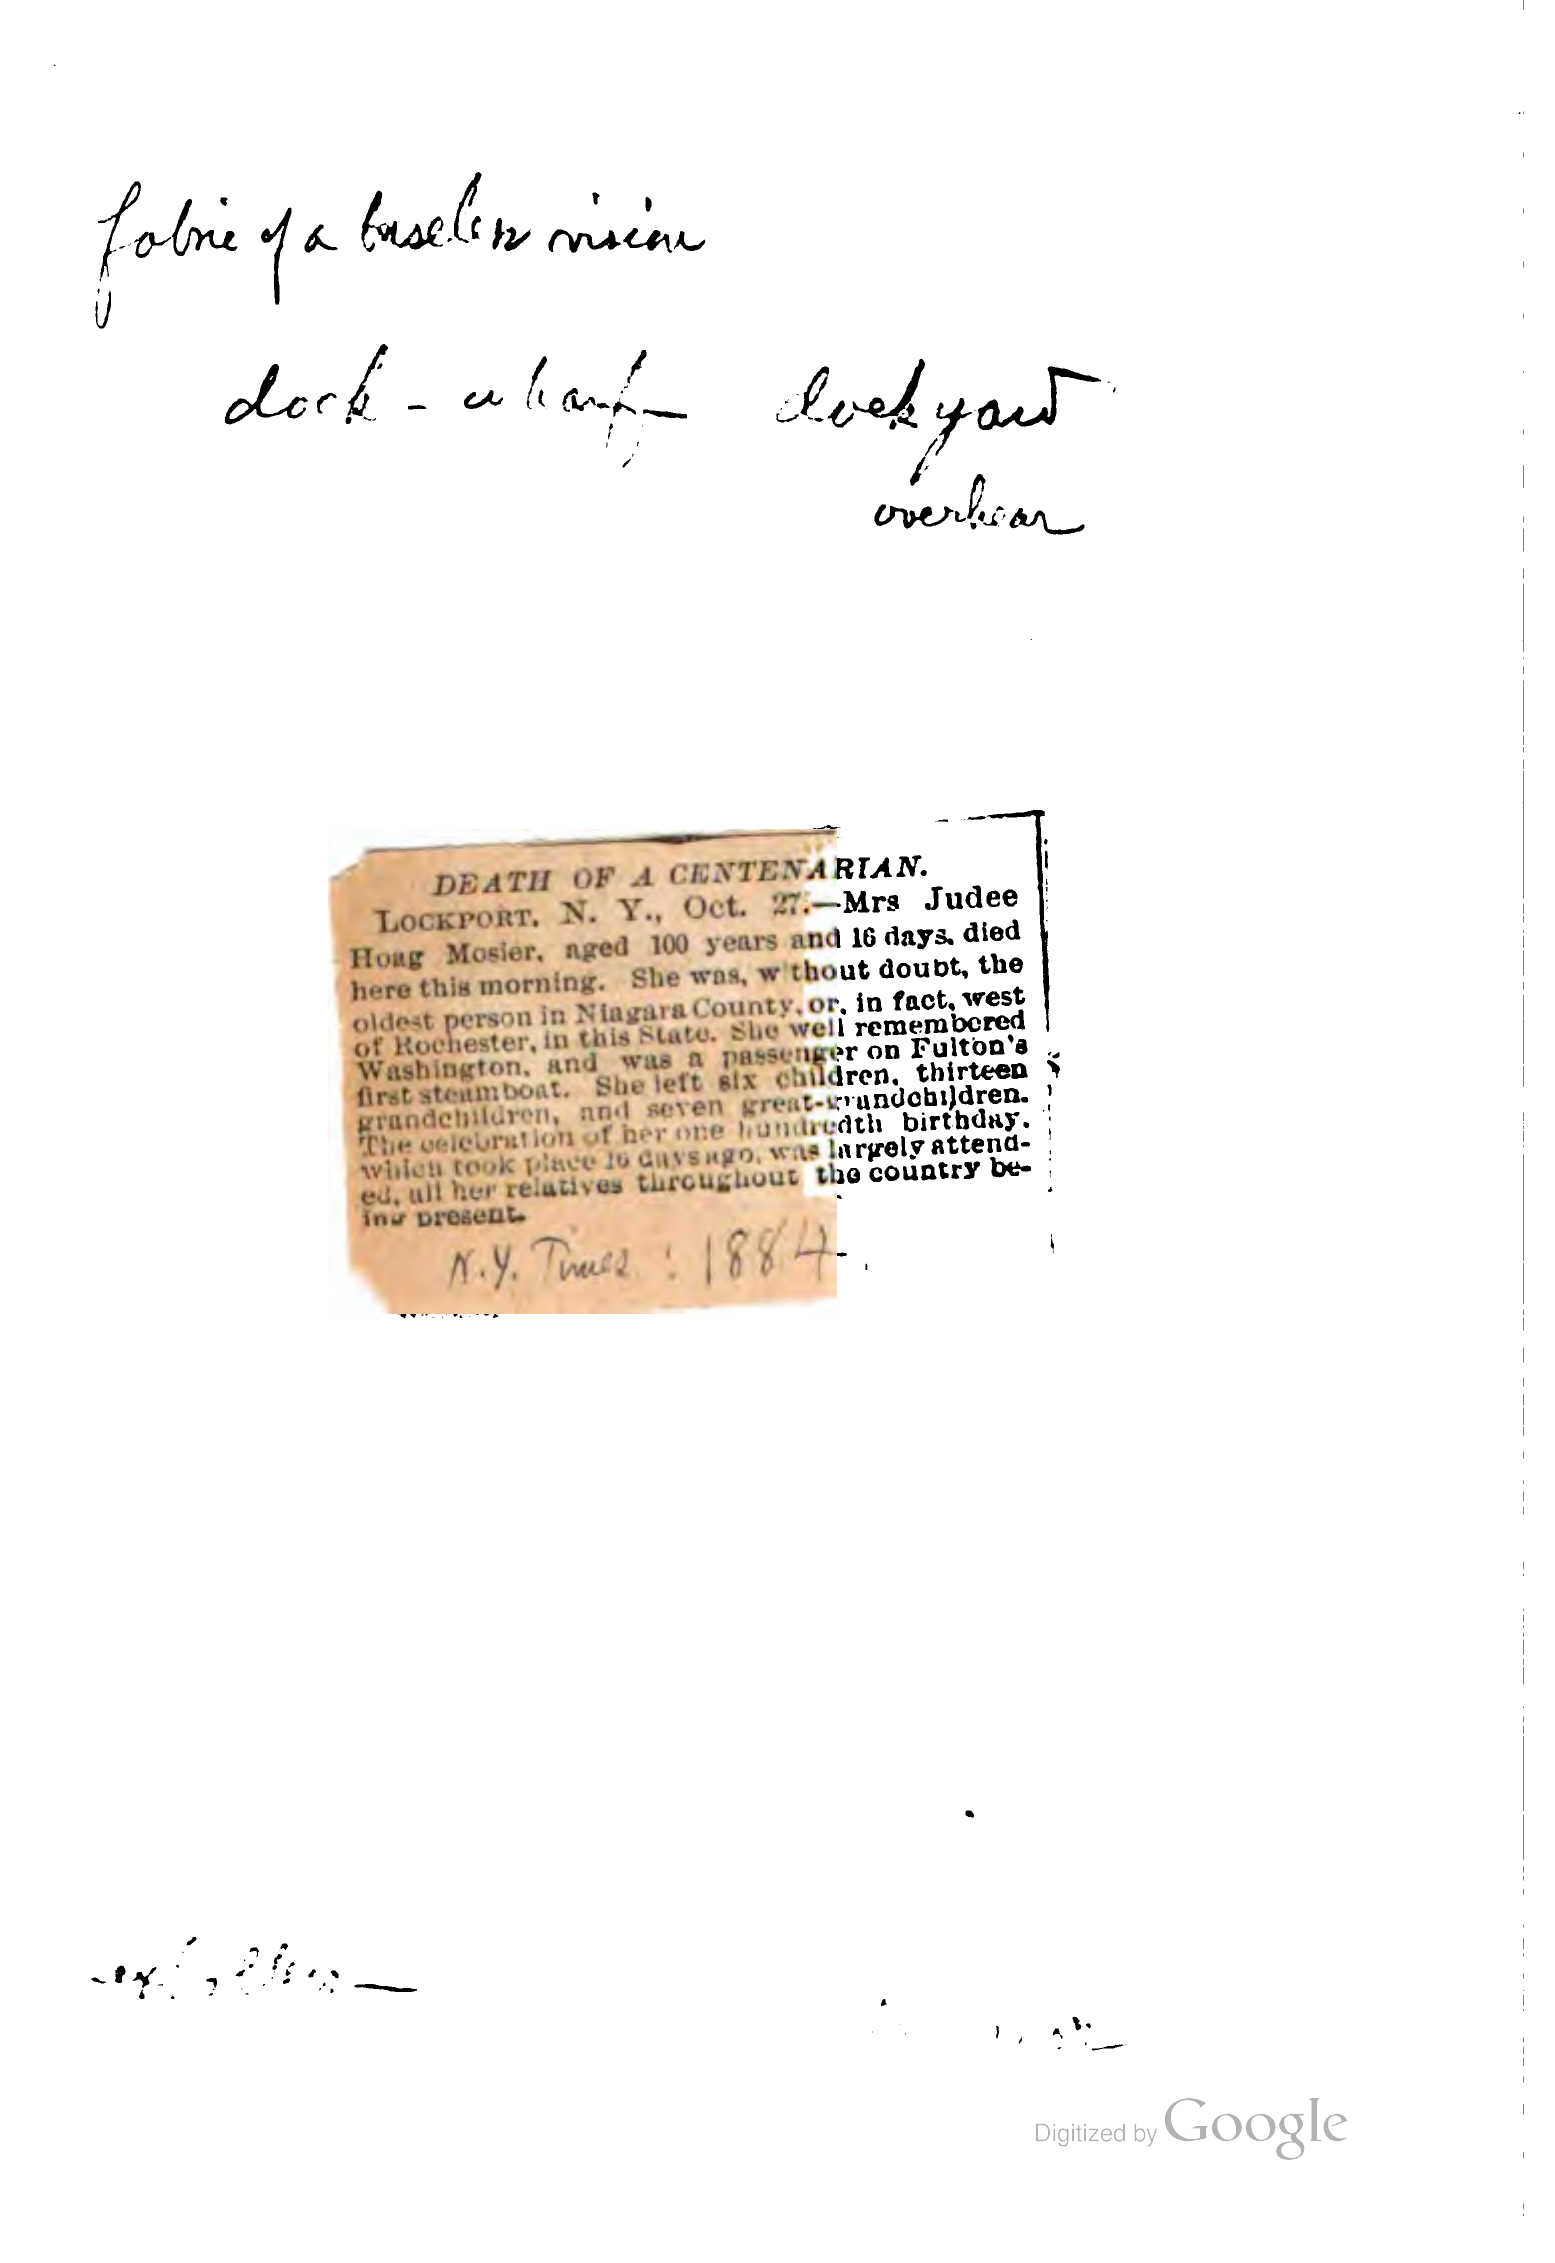 fabric of a baseless vision
dock - wharf dockyard
overhear
DEATH OF A CENTENARIAN.
LOCKPORT, N. Y., Oct. 27.—Mrs Judee
Hoag Mosier, aged 100 years and 16 days, died
here this morning. She was, without doubt, the
oldest person in Niagara County, or, in fact, west
of Rochester, in this State. She well remembered
Washington, and was a passenger on Fulton's
first steamboat. She left six children, thirteen
grandchildren, and seven great-grandchildren.
The celebration of her one hundredth birthday,
which took place 16 days ago, was largely attend-
ed, all her relatives throughout the country be-
ing present.
N.Y. Times : 1884
Digitized by Google